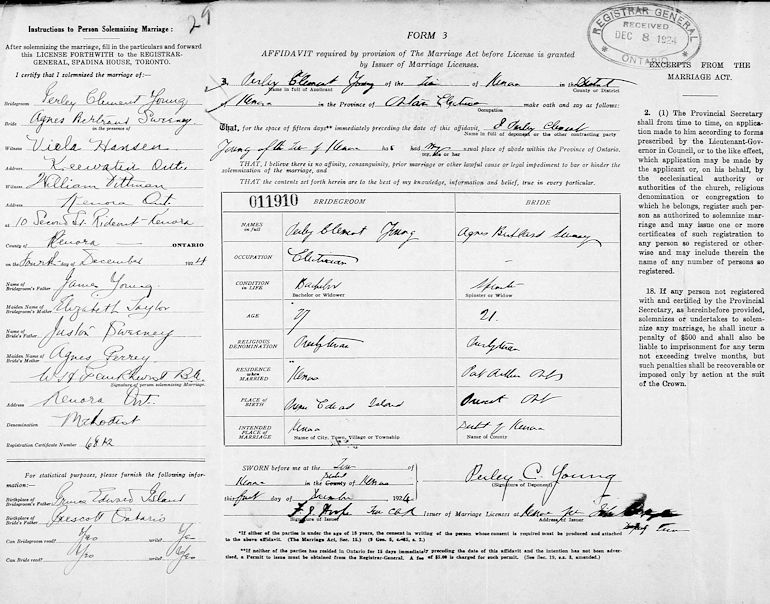 29
Instructions to Person Solemnizing Marriage:
After solemnizing the marriage, fill in the particulars and forward
this LICENSE FORTHWITH to the REGISTRAR-
GENERAL, SPADINA HOUSE, TORONTO.
I certify that I solemnized the marriage of:—
Bridegroom Perley Clement Young
Bride Agnes Bertrand Sweeney
in the presence of
Witness Viola Hansen
Address Keewatin Ont.
Witness William Pittman
Address Kenora Ont.
at 10 Second St. Rideout-Kenora
County of Kenora ONTARIO
on the Fourth day of December 1924
Name of
Bridegroom's Father James Young
Maiden Name of
Bridegroom's Mother Elizabeth Taylor
Name of
Bride's Father Juston Sweeney
Maiden Name of
Bride's Mother Agnes Perrey
Signature of person solemnizing Marriage.
Address Kenora Ont.
Denomination Methodist
Registration Certificate Number
For statistical purposes, please furnish the following infor-
mation:
Birthplace of
Bridegroom's Father Prince Edward Island
Birthplace of
Bride's Father Prescott Ontario
Can Bridegroom read? Yes write? Yes
Can Bride read? Yes write? Yes
FORM 3
AFFIDAVIT required by provision of The Marriage Act before License is granted
by Issuer of Marriage Licenses.
I, Perley Clement Young of the Town of Kenora in the District
Name in full of Applicant County or District
of Kenora in the Province of Ontario Electrician make oath and say as follows:
Occupation
That, for the space of fifteen days** immediately preceding the date of this affidavit, I Perley Clement
Name in full of deponent or the other contracting party
Young of the Town of Kenora had my usual place of abode within the Province of Ontario.
my, his or her
THAT, I believe there is no affinity, consanguinity, prior marriage or other lawful cause or legal impediment to bar or hinder the
solemnization of the marriage, and
THAT the contents set forth herein are to the best of my knowledge, information and belief, true in every particular.
011910 BRIDEGROOM BRIDE
NAMES
in full Perley Clement Young Agnes Sweeney
OCCUPATION Electrician –
CONDITION
in LIFE Bachelor Spinster
Bachelor or Widower Spinster or Widow
AGE 27 21
RELIGIOUS
DENOMINATION Presbyterian Presbyterian
RESIDENCE
when
MARRIED Kenora Port Arthur Ont
PLACE OF
BIRTH Prince Edward Island Prescott Ont
INTENDED
PLACE of
MARRIAGE Kenora District of Kenora
Name of City, Town, Village or Township Name of County
SWORN before me at the Town of
Kenora in the County District of Kenora
this first day of December 1924
Perley C. Young
(Signature of Deponent)
Issuer of Marriage Licenses at Kenora
Signature of Issuer Address of Issuer
*If either of the parties is under the age of 18 years, the consent in writing of the person whose consent is required must be produced and attached
to the above affidavit. (The Marriage Act, Sec. 15.)
**If neither of the parties has resided in Ontario for 15 days immediately preceding the date of this affidavit and the intention has not been adver-
tised, a Permit to issue must be obtained from the Registrar-General. A fee of $5.00 is charged for such permit. (See Sec. 19, s.s. 2, amended.)
REGISTRAR GENERAL
RECEIVED
DEC 8 1924
ONTARIO
EXCERPTS FROM THE
MARRIAGE ACT.
2. (1) The Provincial Secretary
shall from time to time, on appli-
cation made to him according to forms
prescribed by the Lieutenant-Gov-
ernor in Council, or to the like effect,
which application may be made by
the applicant or, on his behalf, by
the ecclesiastical authority or
authorities of the church, religious
denomination or congregation to
which he belongs, register such per-
son as authorized to solemnize mar-
riage and may issue one or more
certificates of such registration to
any person so registered or other-
wise and may include therein the
name of any number of persons so
registered.
18. If any person not registered
with and certified by the Provincial
Secretary, as hereinbefore provided,
solemnizes or undertakes to solem-
nize any marriage, he shall incur a
penalty of $500 and shall also be
liable to imprisonment for any term
not exceeding twelve months, but
such penalties shall be recoverable or
imposed only by action at the suit
of the Crown.